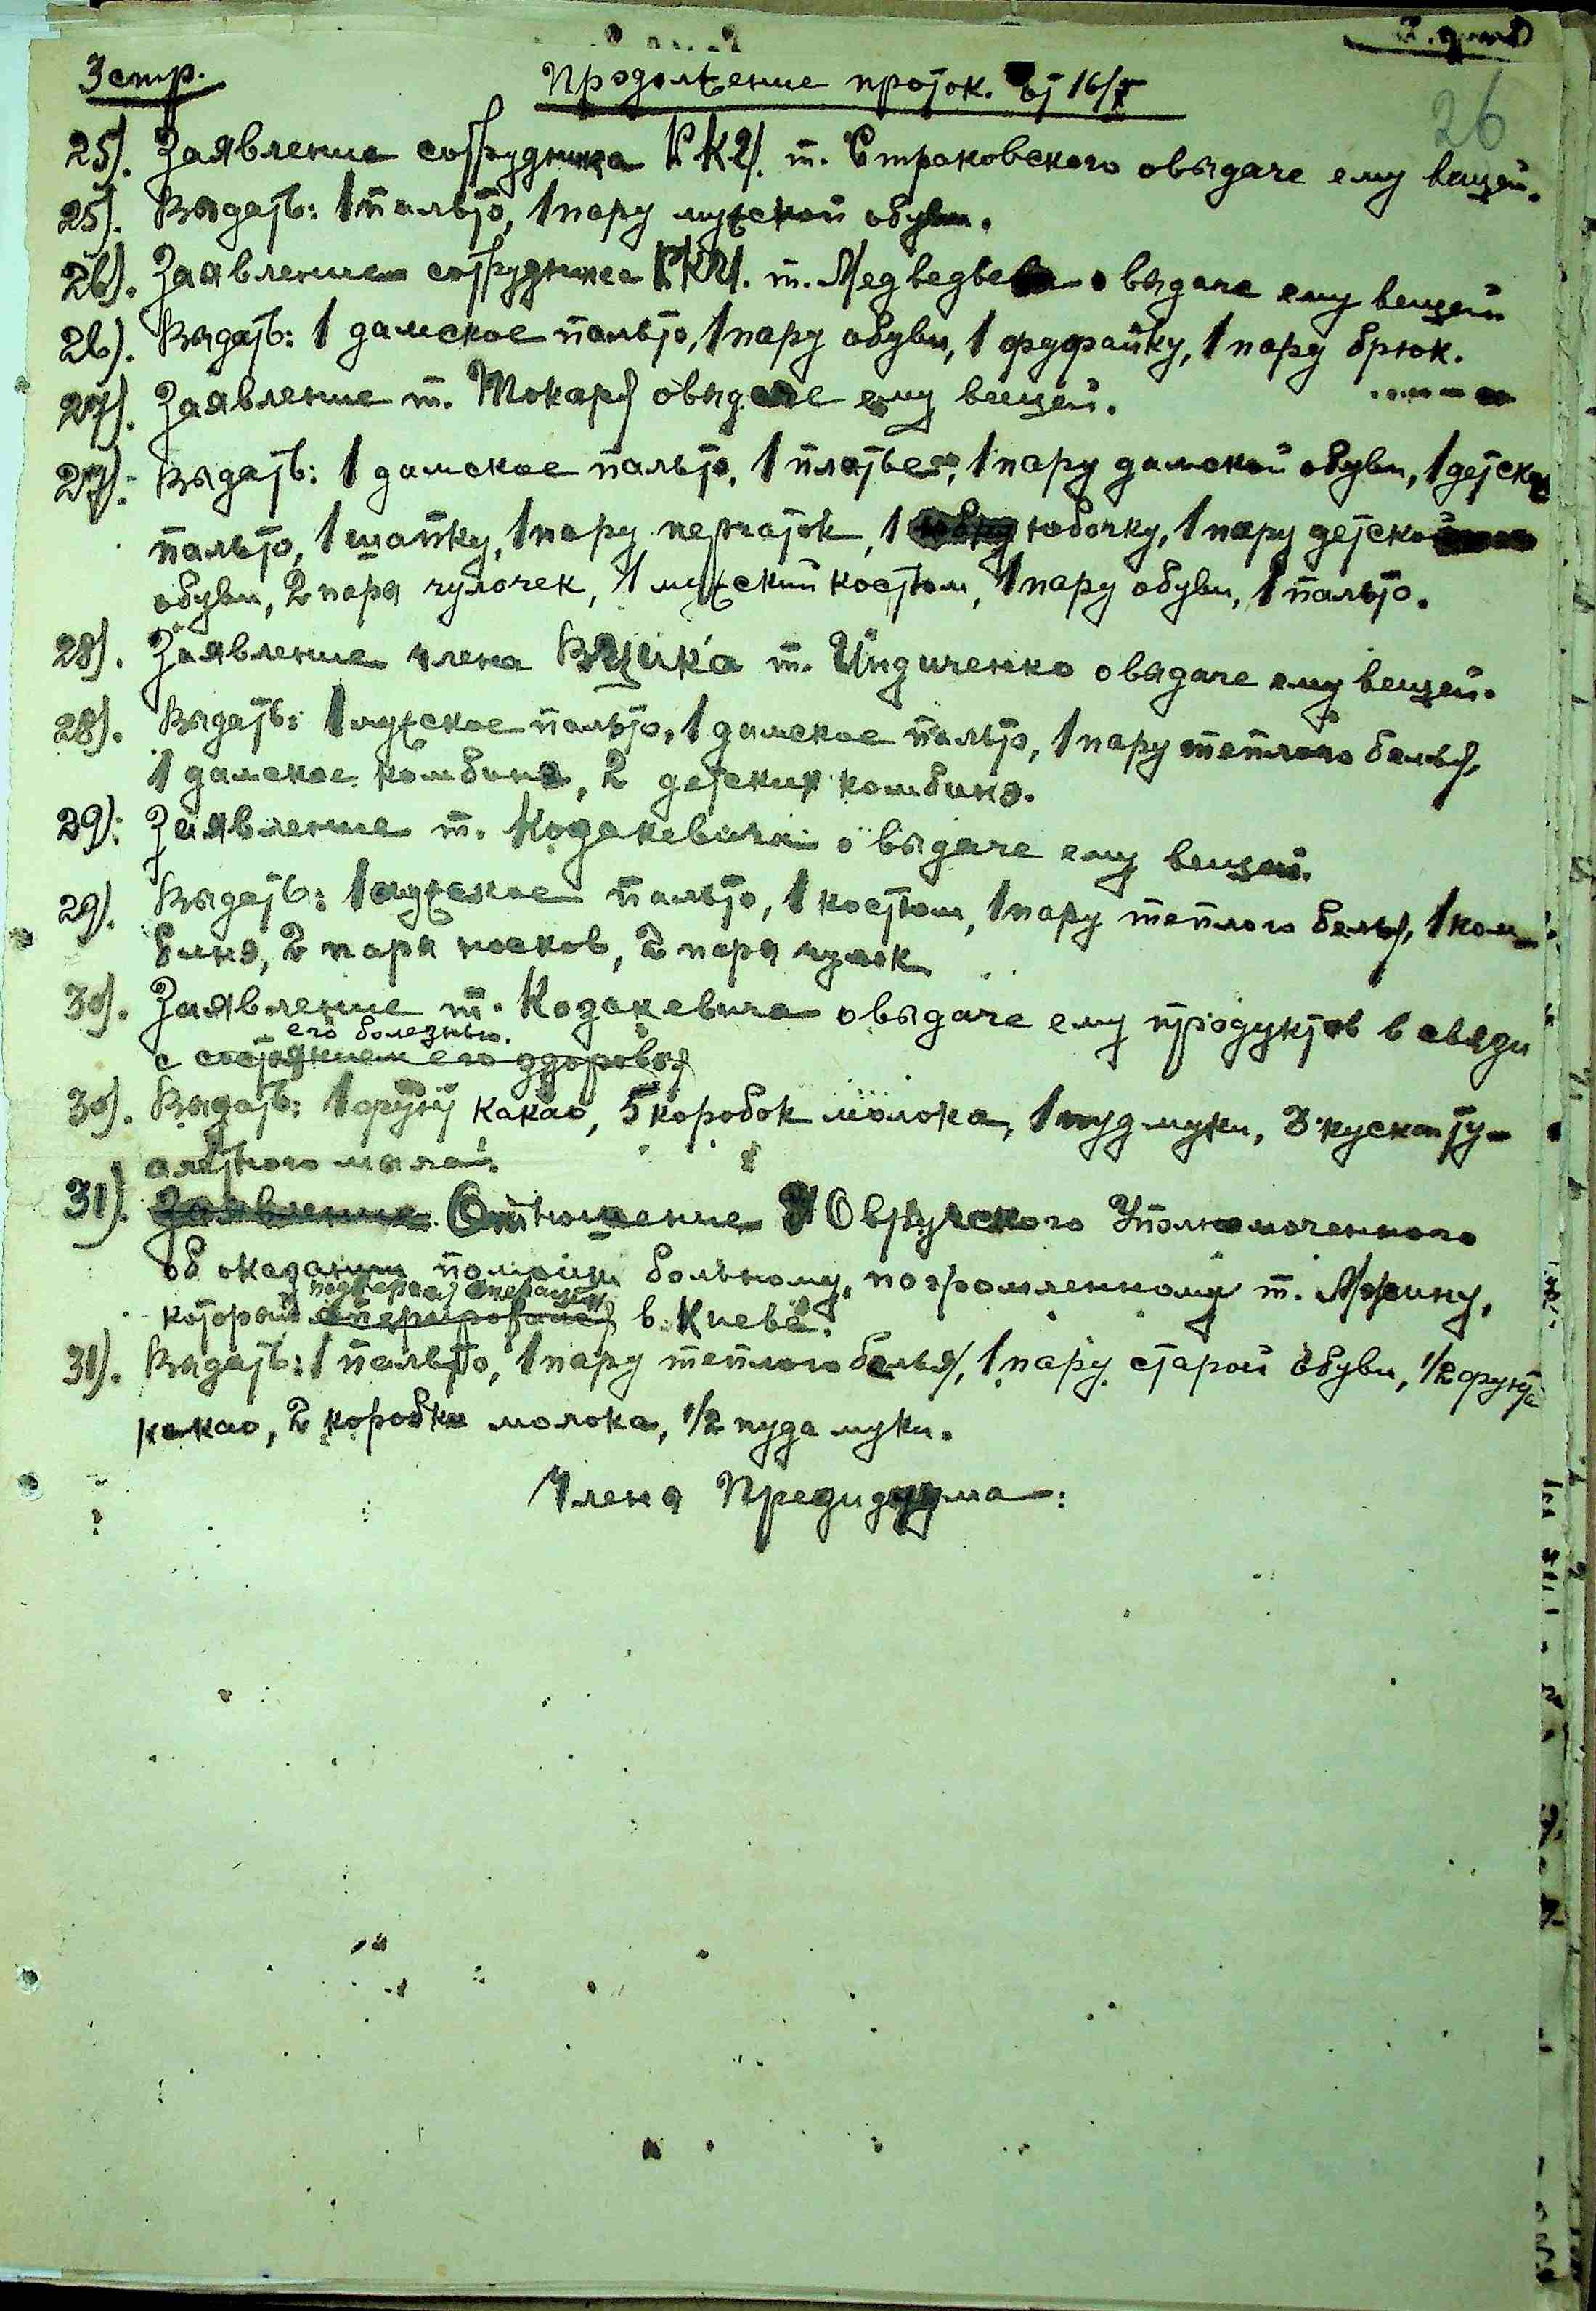 3 стр.
26
Продолжение проток. от 16/X
25). Заявление сотрудника РКИ. т. Страковского о выдаче ему вещей.
25). Выдать: 1 пальто, 1 пару мужской обуви.
26). Заявление сотрудника РКИ. т. Медведева о выдаче ему вещей
26). Выдать: 1 дамское пальто, 1 пару обуви, 1 фуфайку, 1 пару брюк.
27). Заявление т. Токаря о выдаче ему вещей.
27). Выдать: 1 дамское пальто, 1 платье, 1 пару дамской обуви, 1 детское
пальто, 1 шапку, 1 пару перчаток, 1 юбочку, 1 пару детской
обуви, 2 пары чулочек, 1 мужский костюм, 1 пару обуви, 1 пальто.
28). Заявление члена ВЦИК'а т. Индиченко о выдаче ему вещей.
28). Выдать: 1 мужское пальто, 1 дамское пальто, 1 пару теплого белья,
1 дамское комбинэ, 2 детских комбинэ.
29). Заявление т. Козакевича о выдаче ему вещей.
29). Выдать: 1 мужское пальто, 1 костюм, 1 пару теплого белья, 1 ком-
бинэ, 2 пары носков, 2 пары чулок
30). Заявление т. Козакевича о выдаче ему продуктов в связи
его болезнью.
с состоянием его здоровья
30). Выдать: 1 фунт какао, 5 коробок молока, 1 пуд муки, 3 куска ту-
алетного мыла.
31). Заявление Отношение Овручского Уполномоченного
об оказании помощи больному, погромленному т.
подвергается операции
который оперировался в Киеве.
31). Выдать: 1 пальто, 1 пару теплого белья, 1 пару старой обуви, 1/2 фунта
какао, 2 коробки молока, 1/2 пуда муки.
Члены Президиума: